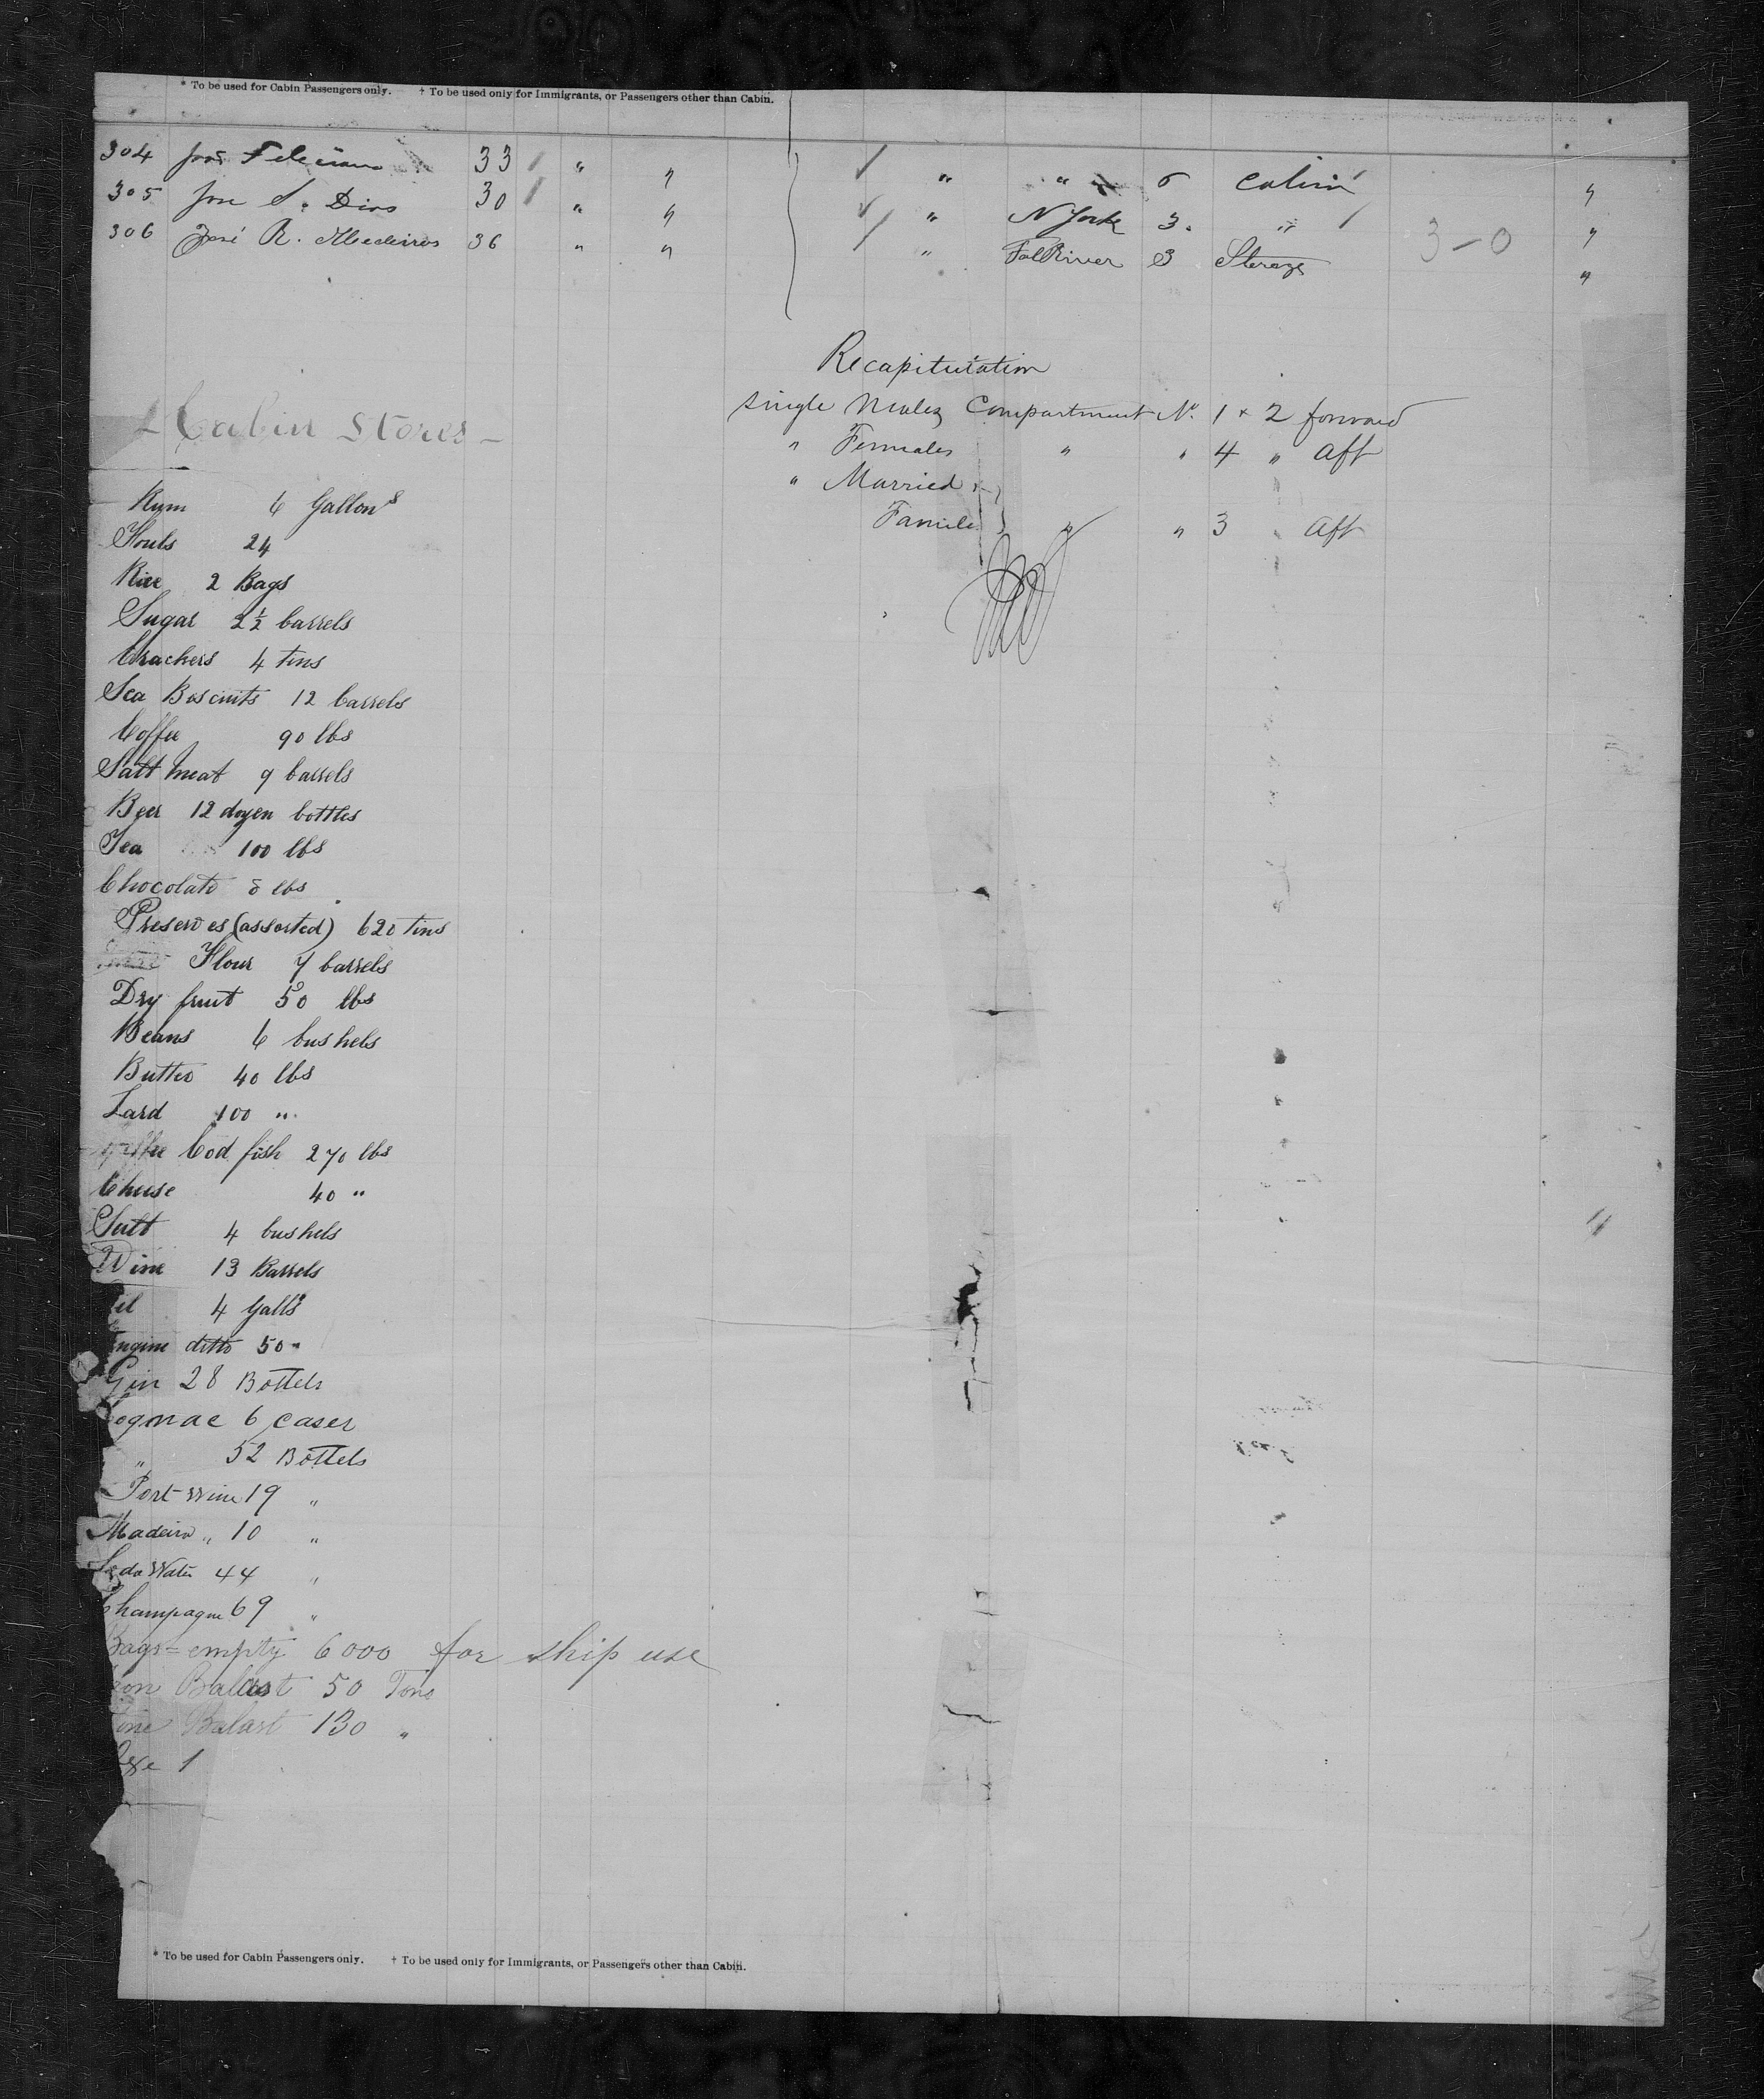 * To be used for Cabin Passengers only. † To be used only for Immigrants, or Passengers other than Cabin.
304 João Feliciano 33 " " " " 5 Cabin "
305 Jose S. Dias 30 " " " N York 3. " "
306 José R. Medeiros 36 " " " Fall River 3 Sterage 3-0 "
Recapitulation
Single Males Compartment No. 1 + 2 forward
" Females " " 4 " Aft
" Married
Famile " " 3 " Aft
Cabin Stores
Rum 6 Gallons
Fouls 24
Rice 2 Bags
Sugar 2½ barrels
Crackers 4 tins
Sea Biscuits 12 barrels
Coffee 90 lbs
Salt meat 9 barrels
Beer 12 dozen bottles
Tea 100 lbs
Chocolate 8 lbs
Preserves (assorted) 620 tins
Flour 7 barrels
Dry fruit 50 lbs
Beans 6 bushels
Butter 40 lbs
Lard 100 "
Cod fish 270 lbs
Cheese 40 "
Salt 4 bushels
Wine 13 Barrels
il 4 Galls
Engine ditto 50 "
Gin 28 Bottels
Cognac 6 cases
" 52 Bottels
Port-wine 19 "
Madeira " 10 "
Soda Water 44 "
Champagne 69 "
Bags = empty 6000 for ship use
ron Balast 50 Tons
tone Balast 130 "
1
* To be used for Cabin Passengers only. † To be used only for Immigrants, or Passengers other than Cabin.